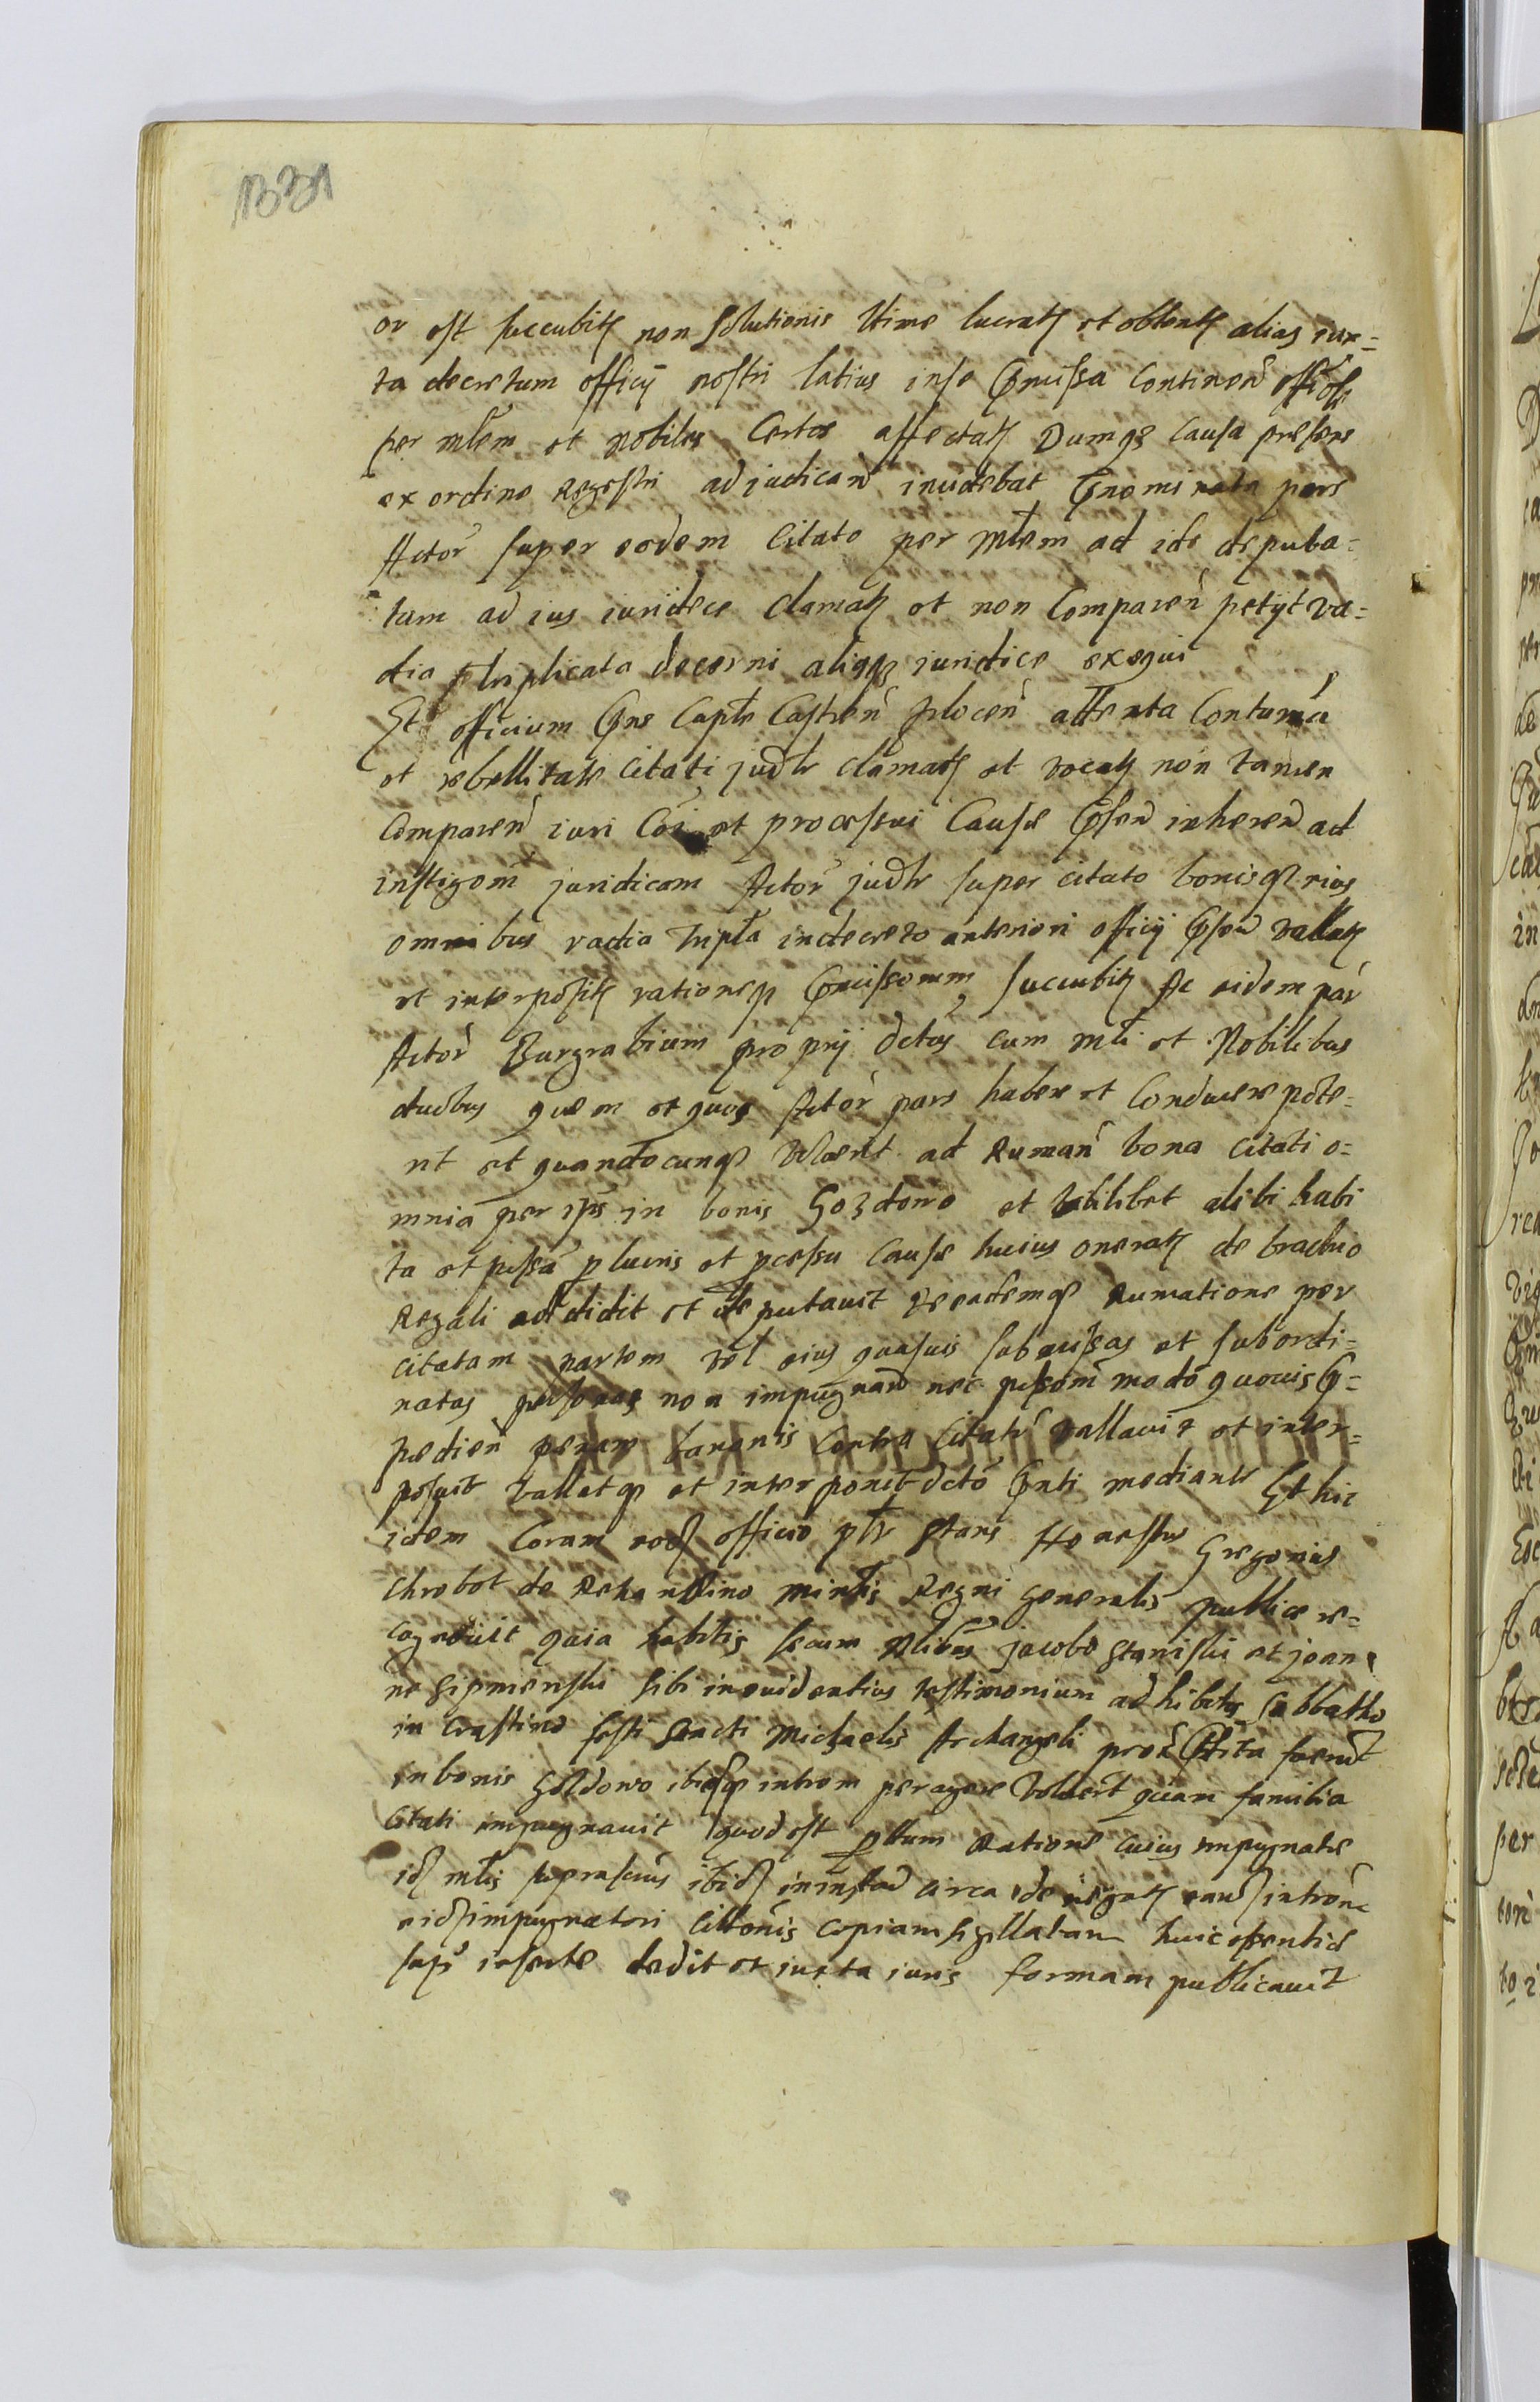 1331
or est succubitꝫ non solutionis ltime lucratꝫ et obtentꝫ alias iux=
ta decretum officij nostri latius in se pmissa continen
per mlem et nobiles certos affectatꝫ Dumqꝫ causa presens
ex ordine regestri ad iudican incidebat pnominata pars
Actor super eodem citato per Mlem ad ide deputa=
tum ad ius iuridice clamatꝫ et non comparen petijt va=
dia triplicata decerni aliaqꝫ iuridice exequi
Et officium pns Caple Castren plocen attenta contuma
et rebellitate citati judlr clamatꝫ et vocatꝫ non tamen
comparen iuri coi et processui causæ psen inheren ad
instigom juridicam Actor judlr super citato bonisqꝫ eius
omnibus vadia tripla in decreto anteriori officij psen vallatꝫ
et interpositꝫ rationeqꝫ pmissorum succubitꝫ Ac eidem par
Actor Burgrabium proprij dctos cum mli et Nobilibus
duobus quem et quos Actor pars habere et conducere pote=
rit et quandocunqꝫ voluerit ad Ruman bona citati o=
mnia per ipm in bonis Gozdowo et vbilibet alibi habi
ta et pssa p lucris et pcessu causæ huius oneratꝫ de brachio
Regali addidit et deputauit Pro eademqꝫ Rumatione per
citatam partem vel eius quasuis submissas et subordi=
natas personas non impugnan nec pssom modo quouis p=
pedien penam banonis contra citatu vallauit et inter=
posuit vallatqꝫ et interponit dcto pnti mediante Et hic
idem coram eod officio plr stans Honestus Gregorius
chrobot de mintis Regni generalis publice re=
cognouit quia habitis secum Nlibus jacobo Staniski et joan
ne sibi in euidentius testimonium adhibitis sabbatho
in crastino festi sancti Michaelis Archangeli prox fuerat
in bonis Gozdowo ibidqꝫ introm peragere voluerit quam familia
citati impugnauit quod est pllum Ratione cuius impugnatæ
id mlis suprascrus ibid in instan circa denegatꝫ eand introne
eid impugnatori cittonis copiam sigillatam huic
sup inserte dedit et iuxta iuris formam publicauit